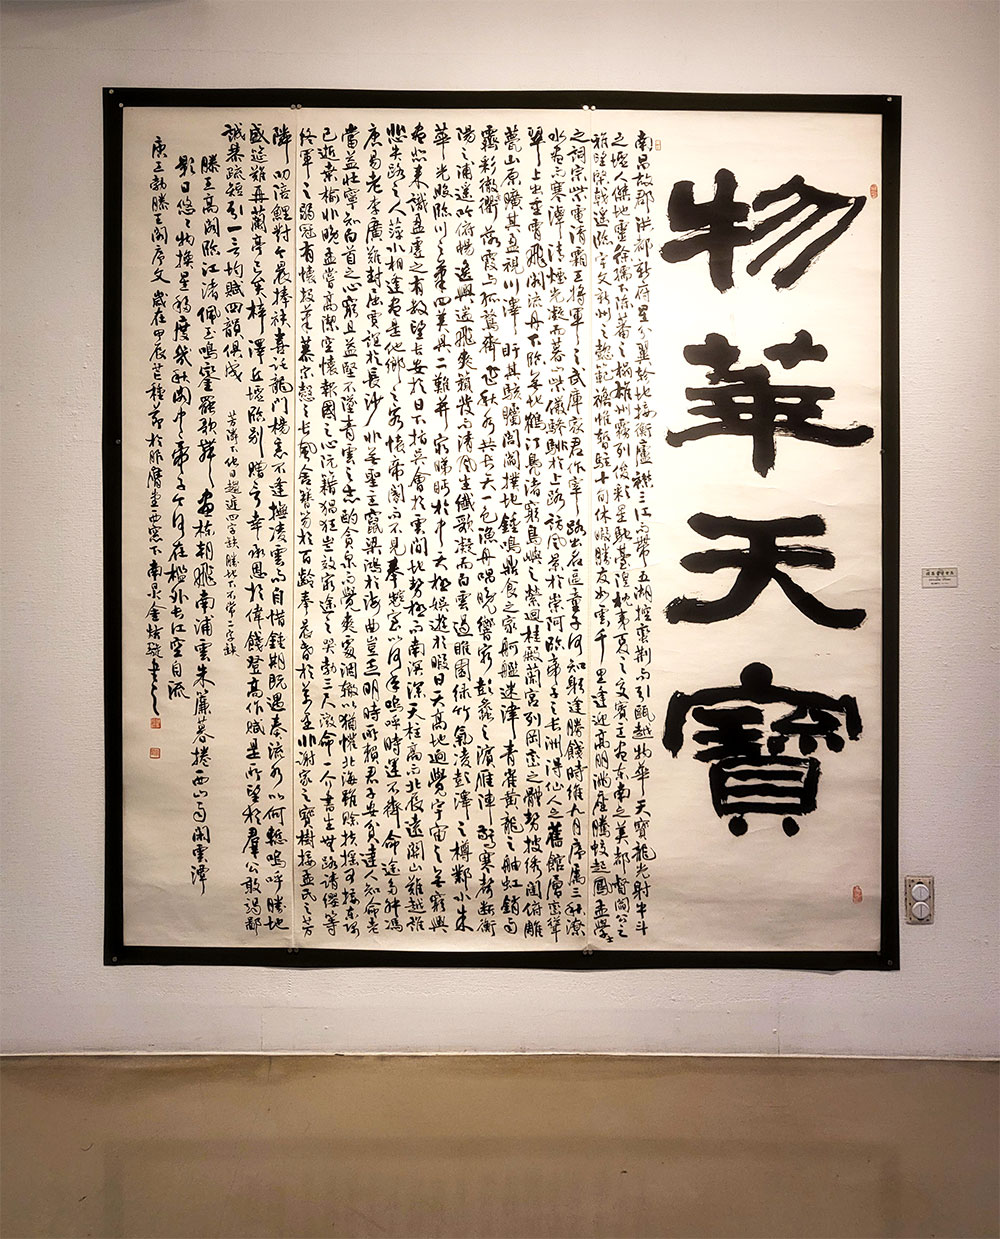 物華天寶
南昌故郡洪都新府星分翼軫地接衡廬襟三江而帶五湖控蠻荊而引甌越物華天寶龍光射牛斗
之墟人傑地靈徐孺下陳蕃之榻雄州霧列俊彩星馳臺隍枕夷夏之交賓主盡東南之美都督閻公之
雅望棨戟遙臨宇文新州之懿範襜帷暫駐十旬休暇勝友如雲千里逢迎高朋滿座騰蛟起鳳孟學士
之詞宗紫電清霜王將軍之武庫家君作宰路出名區童子何知躬逢勝餞時維九月序屬三秋潦
水盡而寒潭清煙光凝而暮山紫儼驂騑於上路訪風景於崇阿臨帝子之長洲得仙人之舊館層巒聳
翠上出重霄飛閣流丹下臨無地鶴汀鳧渚窮島嶼之縈迴桂殿蘭宮列岡巒之體勢披繡闥俯雕
甍山原曠其盈視川澤盱其駭矚閭閻撲地鐘鳴鼎食之家舸艦迷津青雀黃龍之舳虹銷雨
霽彩徹衢落霞與孤鶩齊飛秋水共長天一色漁舟唱晚響窮彭蠡之濱雁陣驚寒聲斷衡
陽之浦遙吟俯暢逸興遄飛爽籟發而清風生纖歌凝而白雲遏睢園綠竹氣凌彭澤之樽鄴水朱
華光照臨川之筆四美具二難并窮睇眄於中天極娛遊於暇日天高地迥覺宇宙之無窮興
盡悲來識盈虛之有數望長安於日下指吳會於雲間地勢極而南溟深天柱高而北辰遠關山難越誰
悲失路之人萍水相逢盡是他鄉之客懷帝閽而不見奉宣室以何年嗚呼時運不齊命途多舛馮
唐易老李廣難封屈賈誼於長沙非無聖主竄梁鴻於海曲豈乏明時所賴君子安貧達人知命老
當益壯寧知白首之心窮且益堅不墜青雲之志酌貪泉而覺爽處涸轍以猶懽北海雖賒扶搖可接東隅
已逝桑榆非晚孟嘗高潔空懷報國之心阮籍猖狂豈效窮途之哭勃三尺微命一介書生無路請纓等
終軍之弱冠有懷投筆慕宗慤之長風舍簪笏於百齡奉晨昏於萬里非謝家之寶樹接孟氏之芳
隣叨陪鯉對今晨捧袂喜託龍門楊意不逢撫凌雲而自惜鍾期既遇奏流水以何慙嗚呼勝地
盛筵難再蘭亭已矣梓澤丘墟臨別贈言幸承恩於偉餞登高作賦是所望於羣公敢竭鄙
誠恭疏短引一言均賦四韻俱成
芳隣下他日趨庭四字缺 勝地下不常二字缺
滕王高閣臨江渚佩玉鳴鑾罷歌舞畫棟朝飛南浦雲朱簾暮捲西山雨閑雲潭
影日悠悠物換星移度幾秋閣中帝子今何在檻外長江空自流
唐王勃滕王閣序文 歲在甲辰芒種節於堂西窓下南泉金書之